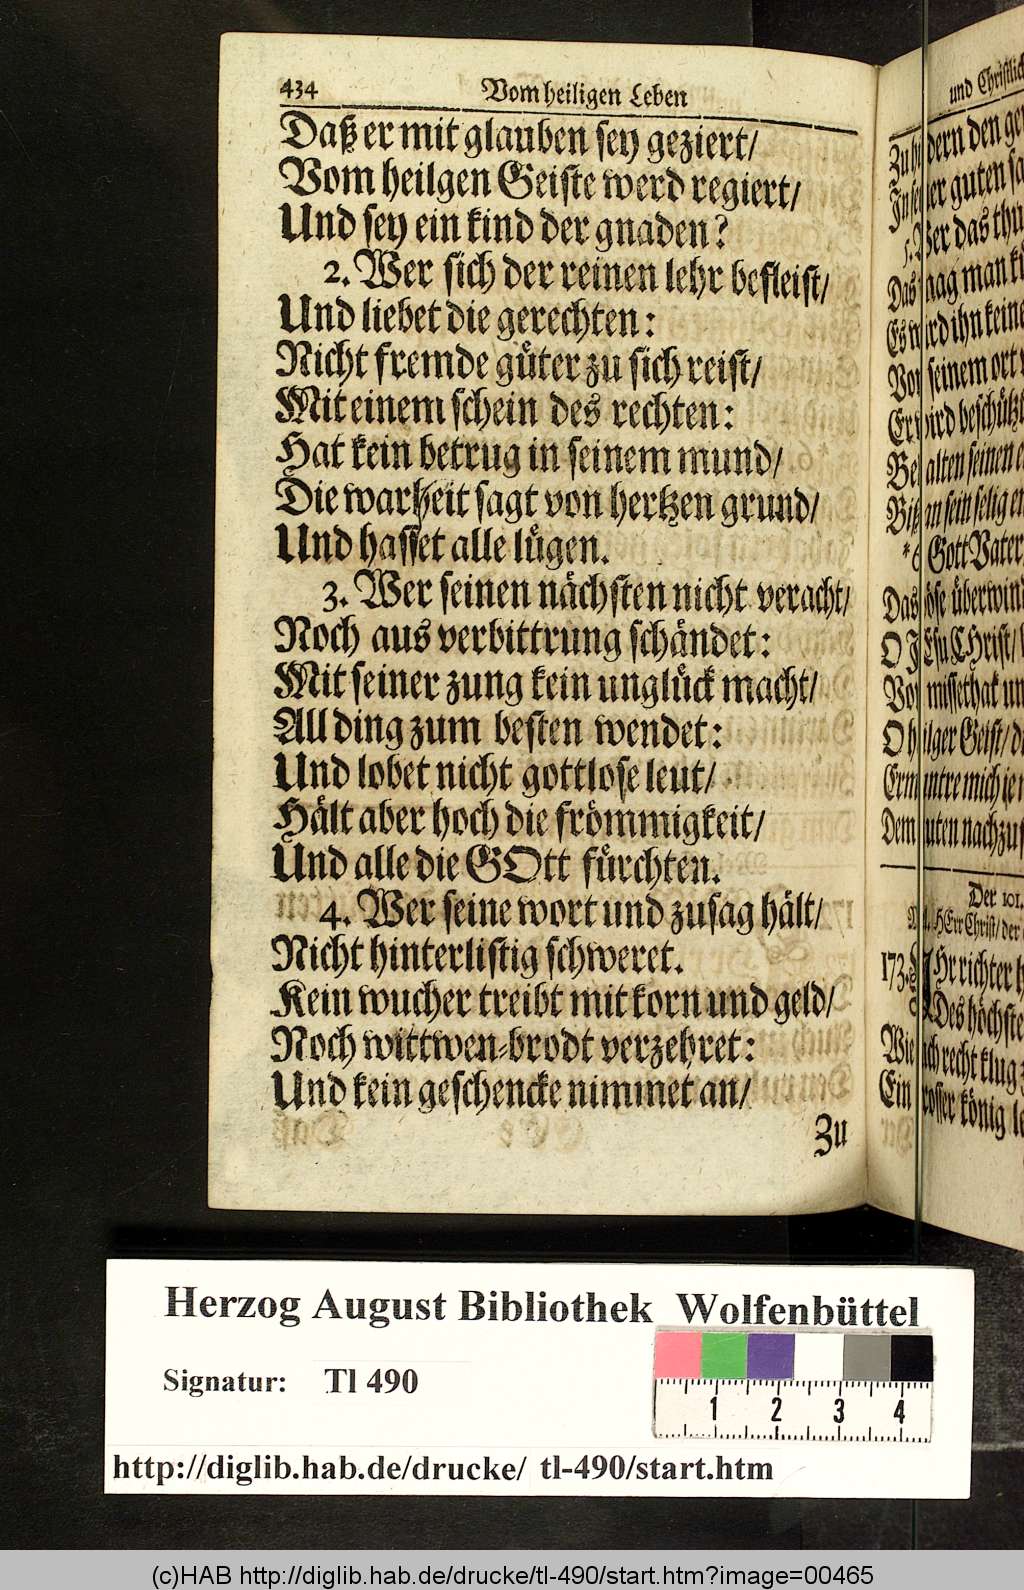 434 Vom heiligen Leben
Daß er mit glauben sey geziert/
Vom heilgen Geiste werd regiert/
Und sey ein kind der gnaden?
2. Wer sich der reinen lehr befleist/
Und liebet die gerechten:
Nicht fremde güter zu sich reist/
Mit einem schein des rechten:
Hat kein betrug in seinem mund/
Die warheit sagt von hertzen grund/
Und hasset alle lügen.
3. Wer seinen nächsten nicht veracht/
Noch aus verbittrung schändet:
Mit seiner zung kein unglück macht/
All ding zum besten wendet:
Und lobet nicht gottlose leut/
Hält aber hoch die frömmigkeit/
Und alle die GOtt fürchten.
4. Wer seine wort und zusag hält/
Nicht hinterlistig schweret.
Kein wucher treibt mit korn und geld/
Noch wittwen-brodt verzehret:
Und kein geschencke nimmet an/
Zu
und Christlich
dern den
guten
5. Wer das thu
Das mag man
Es wird ihn keine
Von seinem ort
Er wird beschützt
alten seinen
sein selig
Gott Vater
Das böse überwin
O JEsu CHrist/
Von missethat
O heilger Geist/
Ermuntre mich je
Dem guten nachzu
Der 101.
HErr Christ/ der
173. Ihr richter
Des höchste
Wie ich recht klug
Ein grosser könig
Herzog August Bibliothek Wolfenbüttel
Signatur: Tl 490
1 2 3 4
http://diglib.hab.de/drucke/ tl-490/start.htm
(c)HAB http://diglib.hab.de/drucke/tl-490/start.htm?image=00465